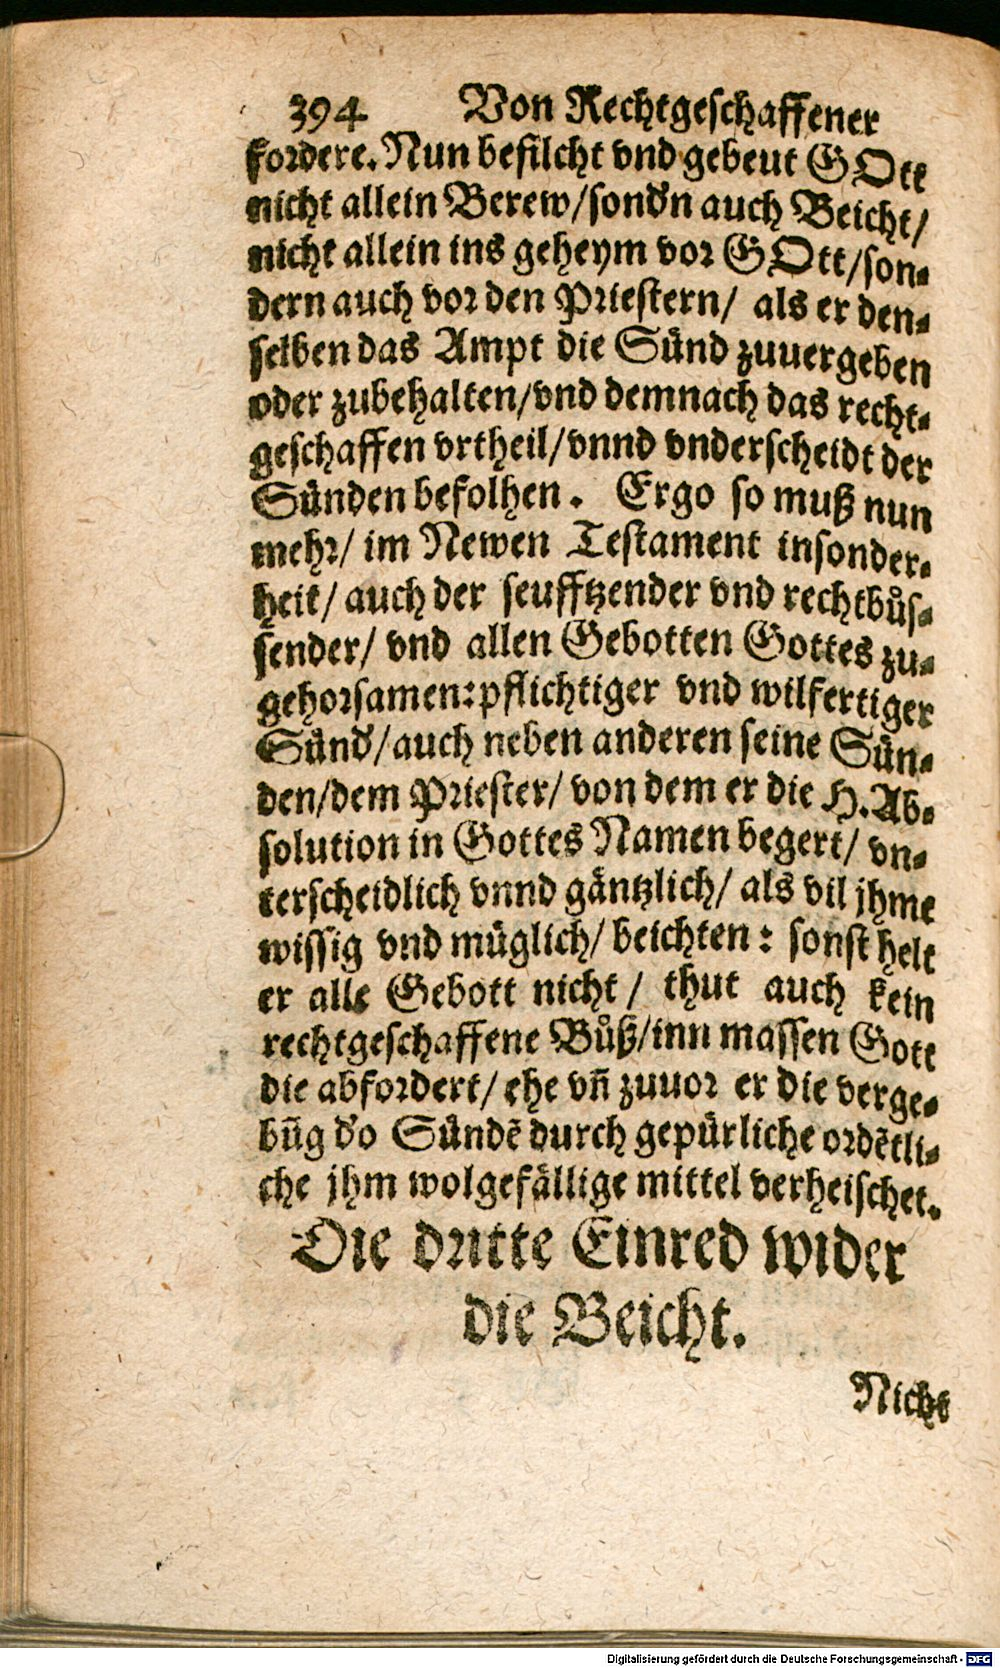 394 Von Rechtgeschaffener
fordere. Nun befilcht vnd gebeut GOtt
nicht allein Berew/sond'n auch Beicht/
nicht allein ins geheym vor GOtt/son-
dern auch vor den Priestern/ als er den-
selben das Ampt die Sünd zuuergeben
oder zubehalten/vnd demnach das recht-
geschaffen vrtheil/vnnd vnderscheidt der
Sünden befolhen. Ergo so muß nun
mehr/ im Newen Testament insonder-
heit/ auch der seufftzender vnd rechtbůs-
sender/ vnd allen Gebotten Gottes zu-
gehorsamen:pflichtiger vnd wilfertiger
Sünd'/auch neben anderen seine Sün-
den/dem Priester/ von dem er die H. Ab-
solution in Gottes Namen begert/ vn-
terscheidlich vnnd gäntzlich/ als vil jhme
wissig vnd müglich/ beichten: sonst helt
er alle Gebott nicht/ thut auch kein
rechtgeschaffene Bůß/inn massen Gott
die abfordert/ ehe vn̄ zuuor er die verge-
būg d'o Sündē durch gepürliche ordētli-
che jhm wolgefällige mittel verheischet.
Die dritte Einred wider
die Beicht.
Nicht
Digitalisierung gefördert durch die Deutsche Forschungsgemeinschaft - DFG